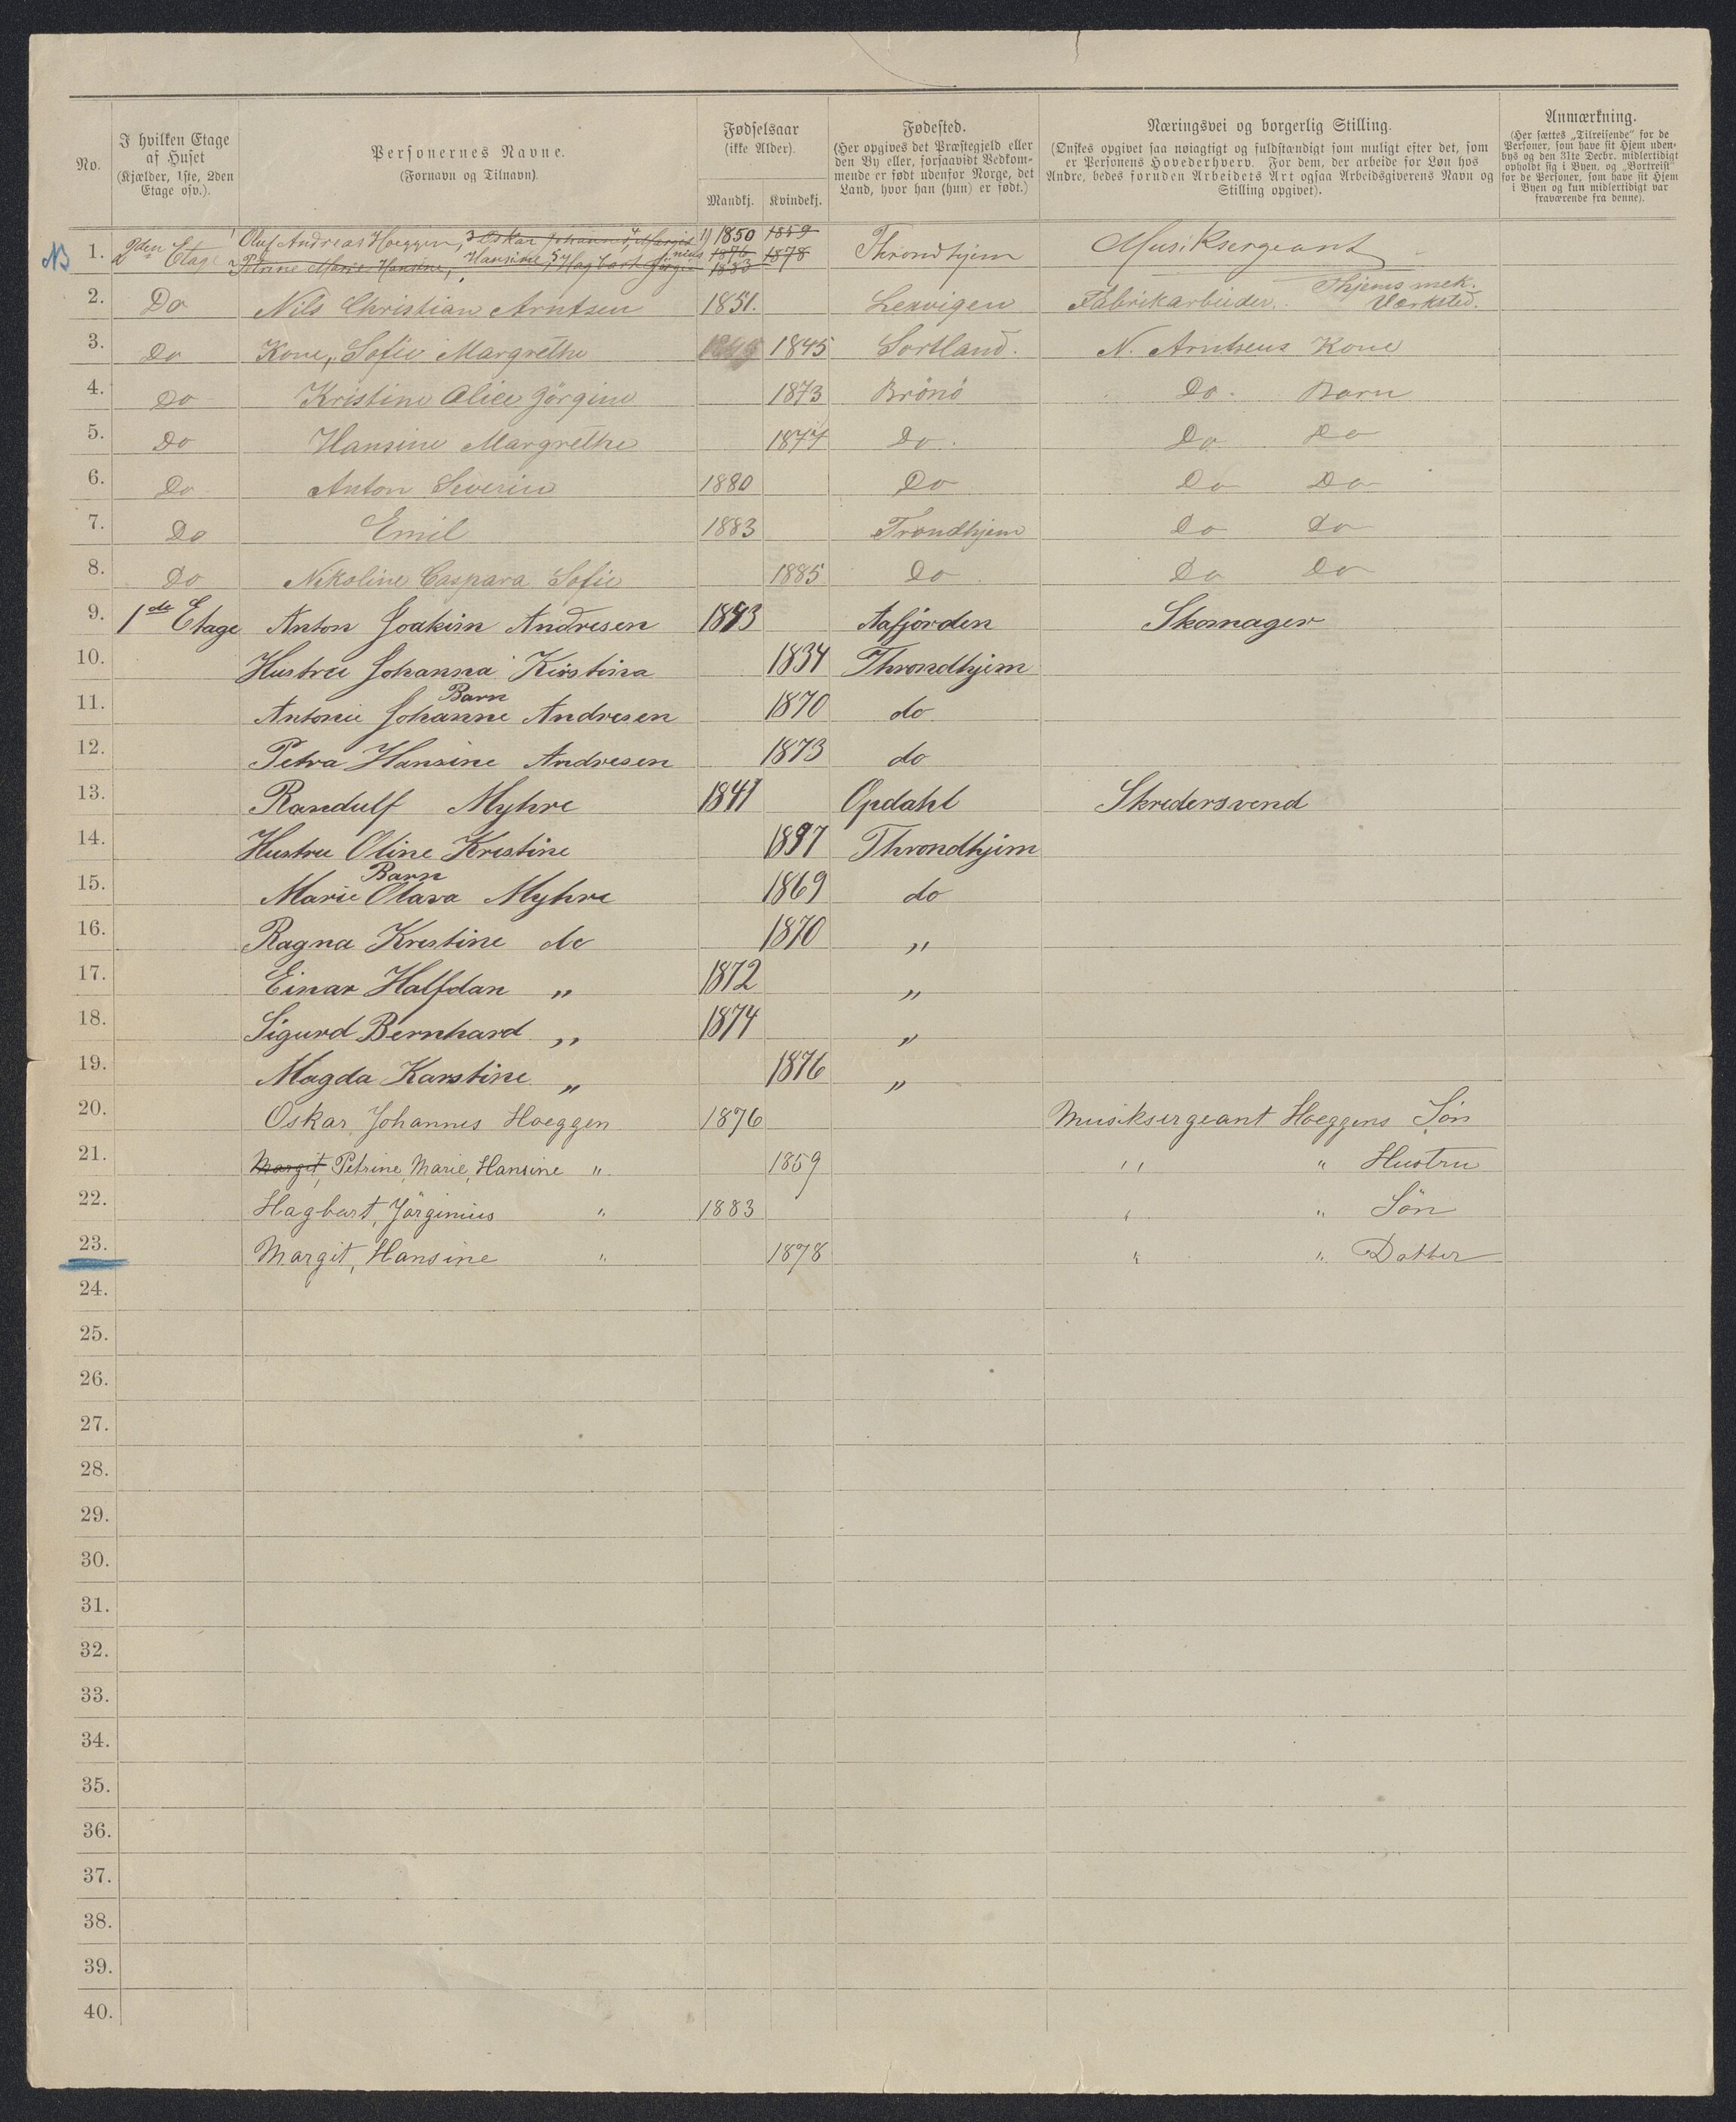 No.
I hvilken Etage
af Huset
(Kjælder, 1ste, 2den
Etage osv.).
Personernes Navne.
(Fornavn og Tilnavn).
Fødselsaar
(ikke Alder).
Mandkj. Kvindekj.
Fødested.
(Her opgives det Præstegjeld eller
den By eller, forsaavidt Vedkom-
mende er født udenfor Norge, det
Land, hvor han (hun) er født.)
Næringsvei og borgerlig Stilling.
(Ønskes opgivet saa nøiagtigt og fuldstændigt som muligt efter det, som
er Personens Hovederhverv. For dem, der arbeide for Løn hos
Andre, bedes foruden Arbeidets Art ogsaa Arbeidsgiverens Navn og
Stilling opgivet).
Anmærkning.
(Her sættes „Tilreisende“ for de
Personer, som have sit Hjem uden-
bys og den 31te Decbr. midlertidigt
opholdt sig i Byen, og „Bortreist“
for de Personer, som have sit Hjem
i Byen og kun midlertidigt var
fraværende fra denne).
NB 1. 2den Etage 1 Oluf Andreas Hoeggen, 3 Oskar Johannes, 4 Margit 1) 1850 1859 Throndhjem Musiksergeant
2 Petrine Marie Hansine, Hansine, 5 Hagbart Jörginius 1876 1878 1883
2. Do Nils Christian Arntsen 1851. Lexvigen Fabrikarbeider. Thjems mek. Værksted.
3. Do Kone, Sofie Margrethe 1845 Sortland. N. Arntsens Kone
4. Do Kristine Alice Jörgine 1873 Brönö Do. Barn
5. Do Hansine Margrethe 1877 Do. Do Do
6. Do Anton Severin 1880 Do Do Do
7. Do Emil 1883 Trondhjem Do Do
8. Do Nikoline Caspara Sofie 1885 Do Do Do
9. 1ste Etage Anton Joakim Andresen 1843 Aafjorden Skomager
10. Hustru Johanna Kirstina 1834 Throndhjem
Barn
11. Antonie Johanne Andresen 1870 do
12. Petra Hansine Andresen 1873 do
13. Randulf Myhre 1841 Opdahl Skredersvend
14. Hustru Oline Kristine 1837 Throndhjem
Barn
15. Marie Olava Myhre 1869 do
16. Ragna Kristine do 1870 „
17. Einar Halfdan „ 1872 „
18. Sigurd Bernhard „ 1874 „
19. Magda Karstine „ 1876 „
20. Oskar, Johannes Hoeggen 1876 Musiksergeant Hoeggens Sön
21. Margit, Petrine, Marie, Hansine " 1859 " " Hustru
22. Hagbart, Jörginius " 1883 " " Sön
23. Margit, Hansine " 1878 " " Datter
24.
25.
26.
27.
28.
29.
30.
31.
32.
33.
34.
35.
36.
37.
38.
39.
40.